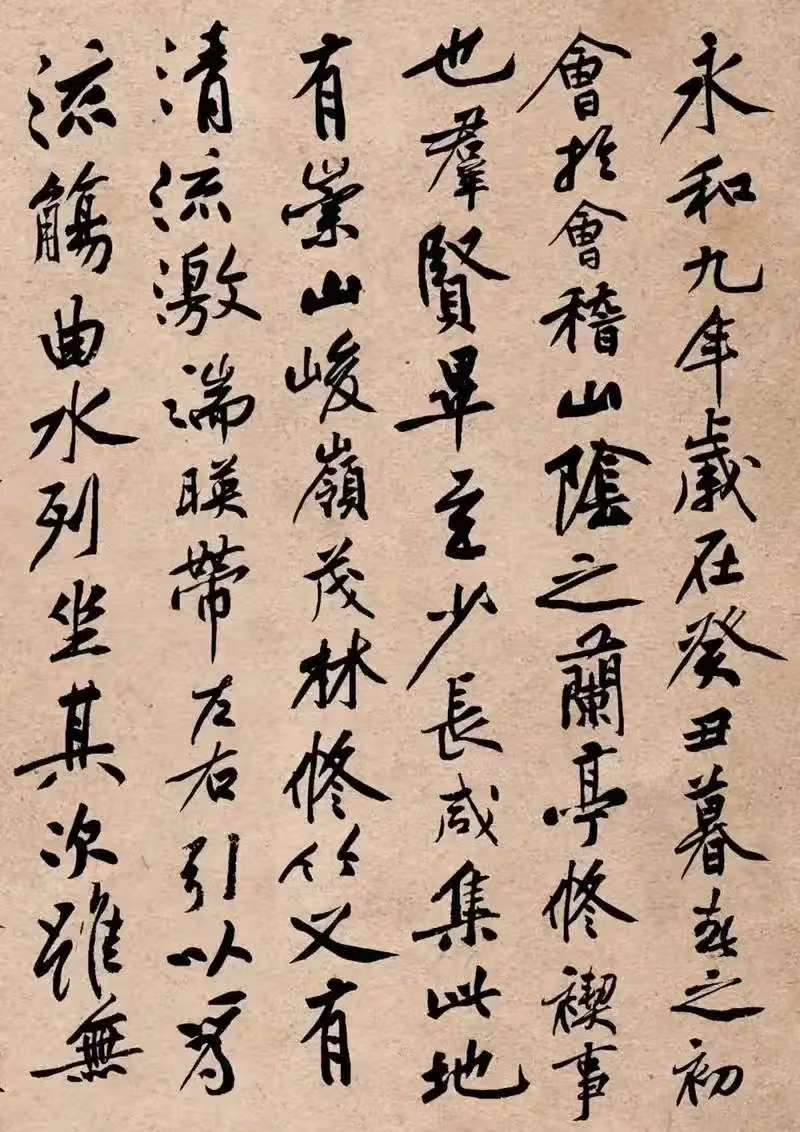 永和九年歲在癸丑暮春之初
會於會稽山陰之蘭亭修禊事
也羣賢畢至少長咸集此地
有崇山峻嶺茂林修竹又有
清流激湍暎帶左右引以為
流觴曲水列坐其次雖無